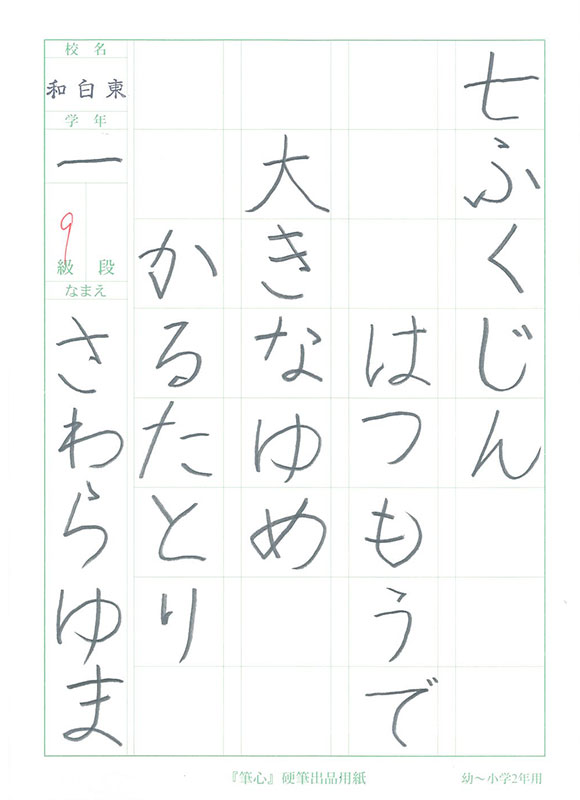 七ふくじん
はつもうで
大きなゆめ
かるたとり
校名
和白東
学年
一
9
級段
なまえ
さわらゆま
『筆心』硬筆出品用紙
幼〜小学2年用